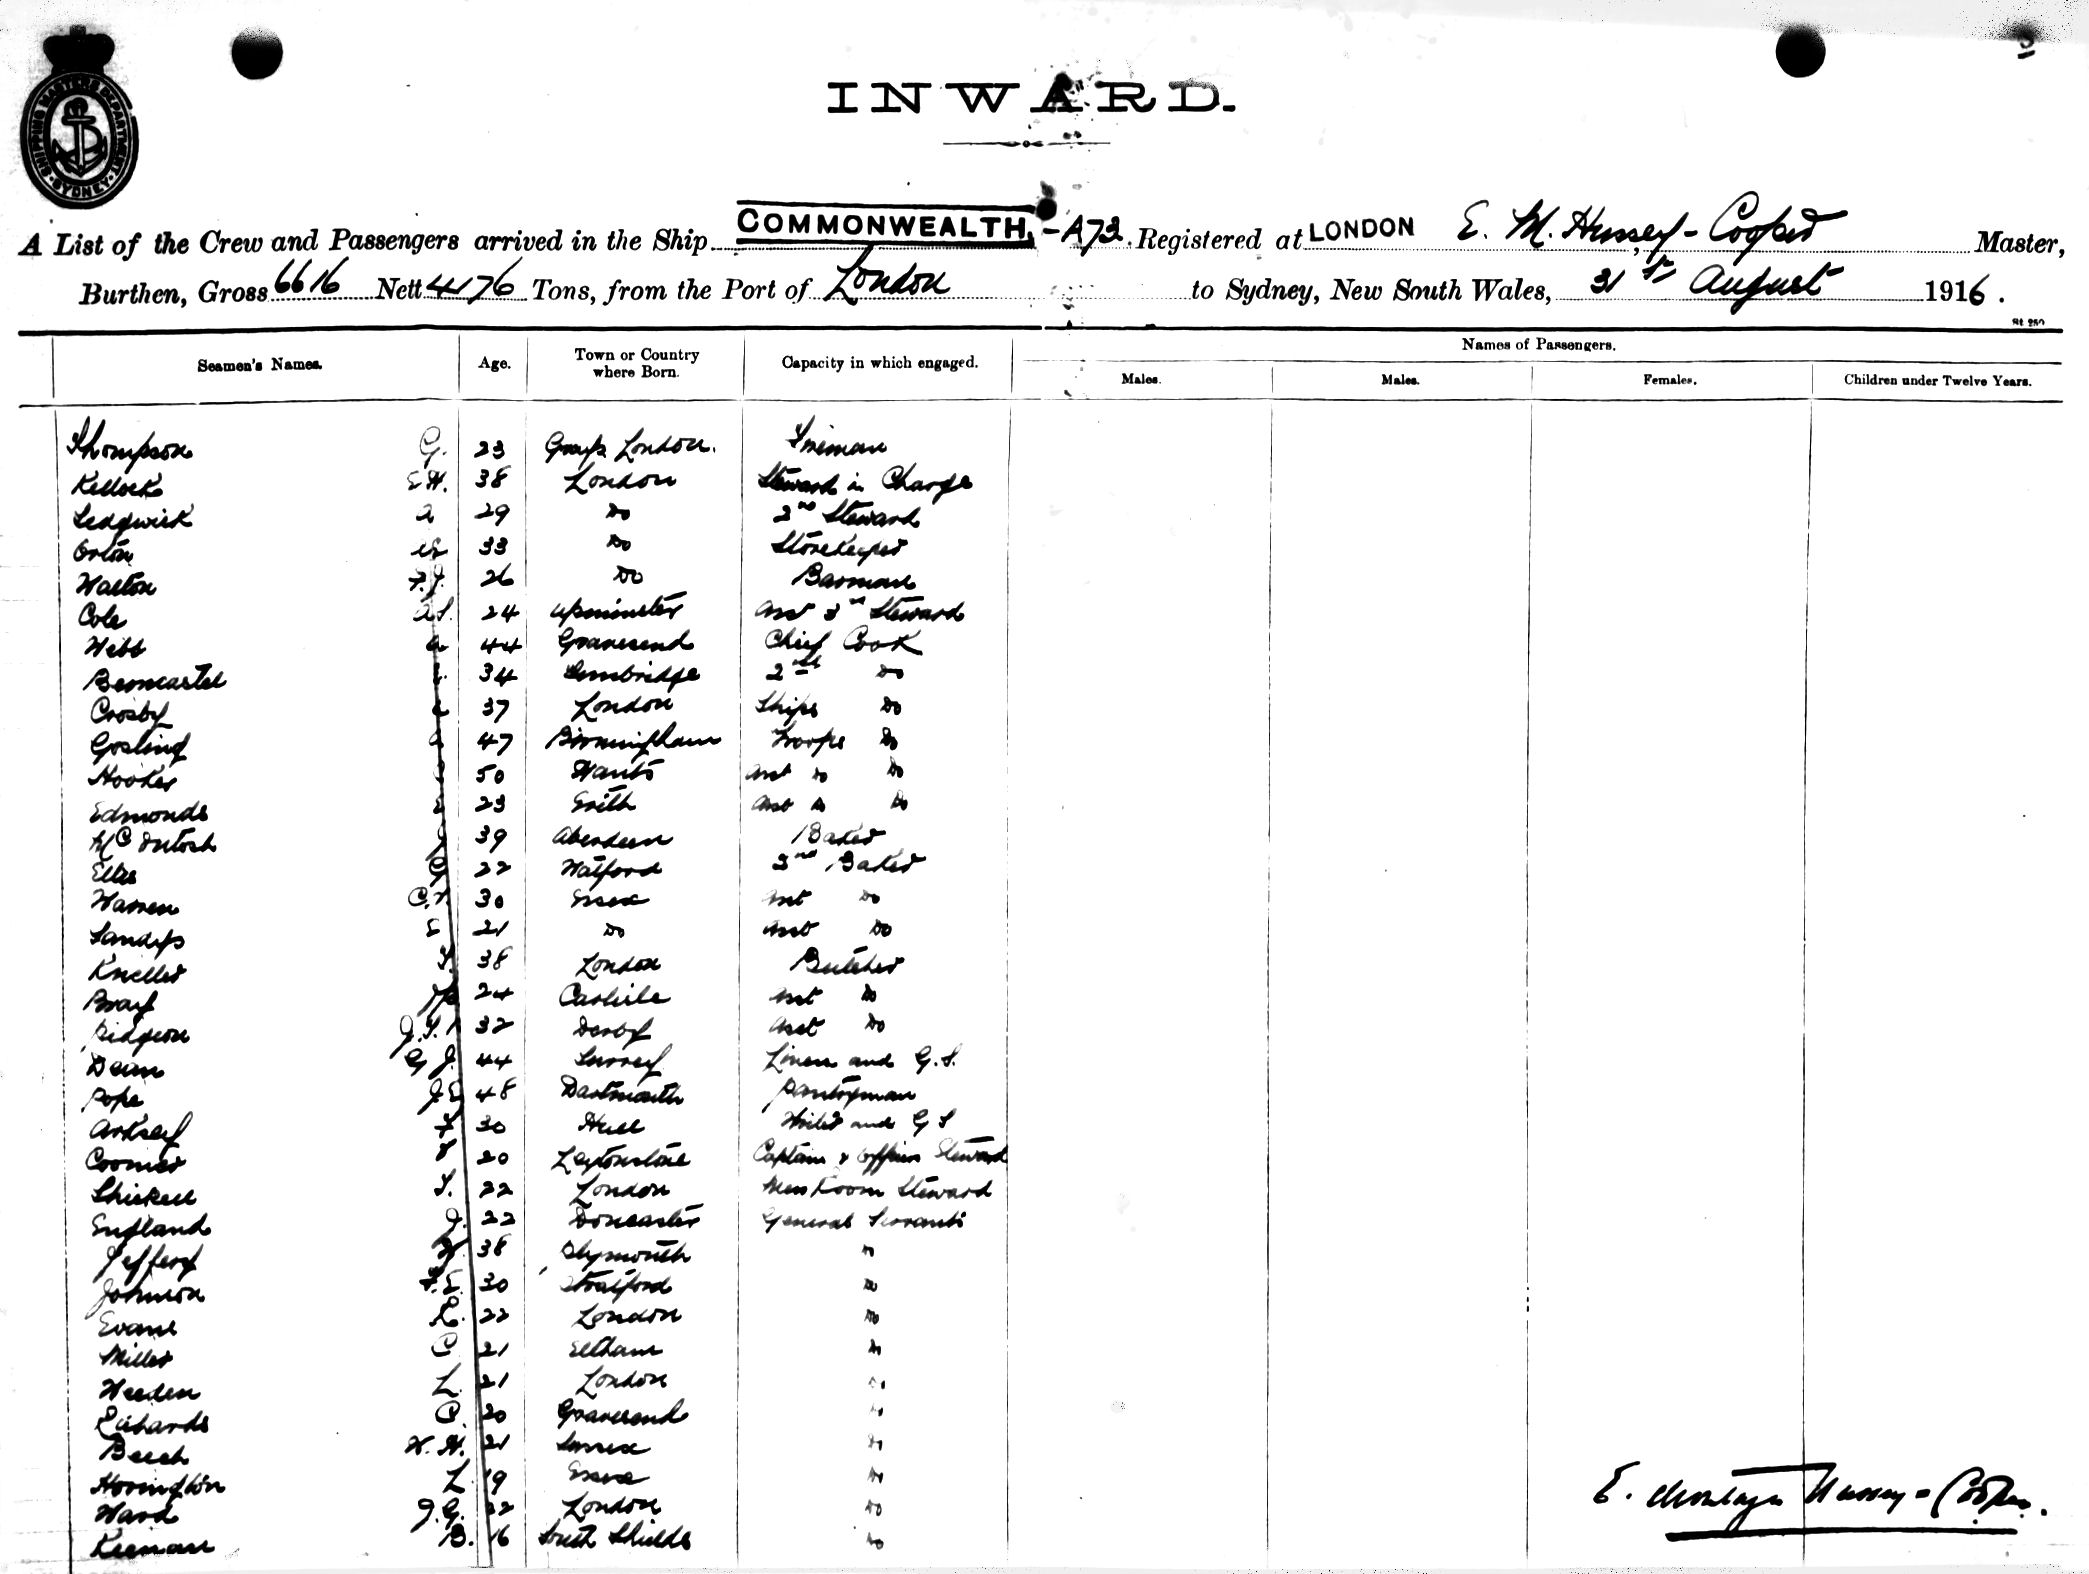 SHIPPING MASTERS DEPARTMENT
SYDNEY
INWARD.
A List of the Crew and Passengers arrived in the Ship COMMONWEALTH, - A73. Registered at LONDON E. M. Hussey-Cooper Master,
Burthen, Gross 6616 Nett 4176 Tons, from the Port of London to Sydney, New South Wales, 31st August 1916.
St. 250
Seamen's Names. Age. Town or Country where Born. Capacity in which engaged. Names of Passengers.
Males. Males. Females. Children under Twelve Years.
Thompson G. 23 Grays London. Fireman
Kellock E.H. 38 London Steward in Charge
Sedgwick 29 Do 2nd Steward
Orton 33 Do Storekeeper
Walton F.J. 26 Do Barman
Cole A.S. 24 Upminster Asst 3rd Steward
Webb A 44 Gravesend Chief Cook
Berncastel 34 2nd Do
Crosby 37 London Ships Do
Gosling 47 Birmingham Troops Do
Hooker 50 Hants Asst Do Do
Edmonds 23 Erith Asst Do Do
McIntosh J 39 Aberdeen Baker
Ellis G 22 Watford 2nd Baker
Warren C. 30 Essex Asst Do
Sandys E 21 Do Asst Do
Kneller S. 38 London Butcher
Bray 24 Carlisle Asst Do
Ridgeon J.S. 32 Derby Asst Do
Dean G J. 44 Surrey Linen and G.S.
Pope J.E. 48 Dartmouth Pantryman
Arksey F 30 Hull Writer and G S
Coomer 20 Leytonstone Captain & Officers Steward
Shickell S. 22 London Mess Room Steward
England J. 22 Doncaster General Servants
Jeffery W. 38 Plymouth Do
Johnson F.E. 30 Stratford Do
Evans E. 22 London Do
Miller C 21 Eltham Do
Weeden L 21 London Do
Richards C. 20 Gravesend Do
Beech W. H. 21 Sussex Do
Horington L 19 Essex Do
Ward J.G. 22 London Do
Keenan B. 16 South Shields Do
E. Montagu Hussey-Cooper.